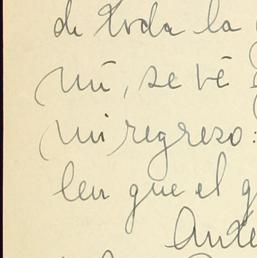 de toda la
mí, se vé
mi regreso:
len que el g
Ande